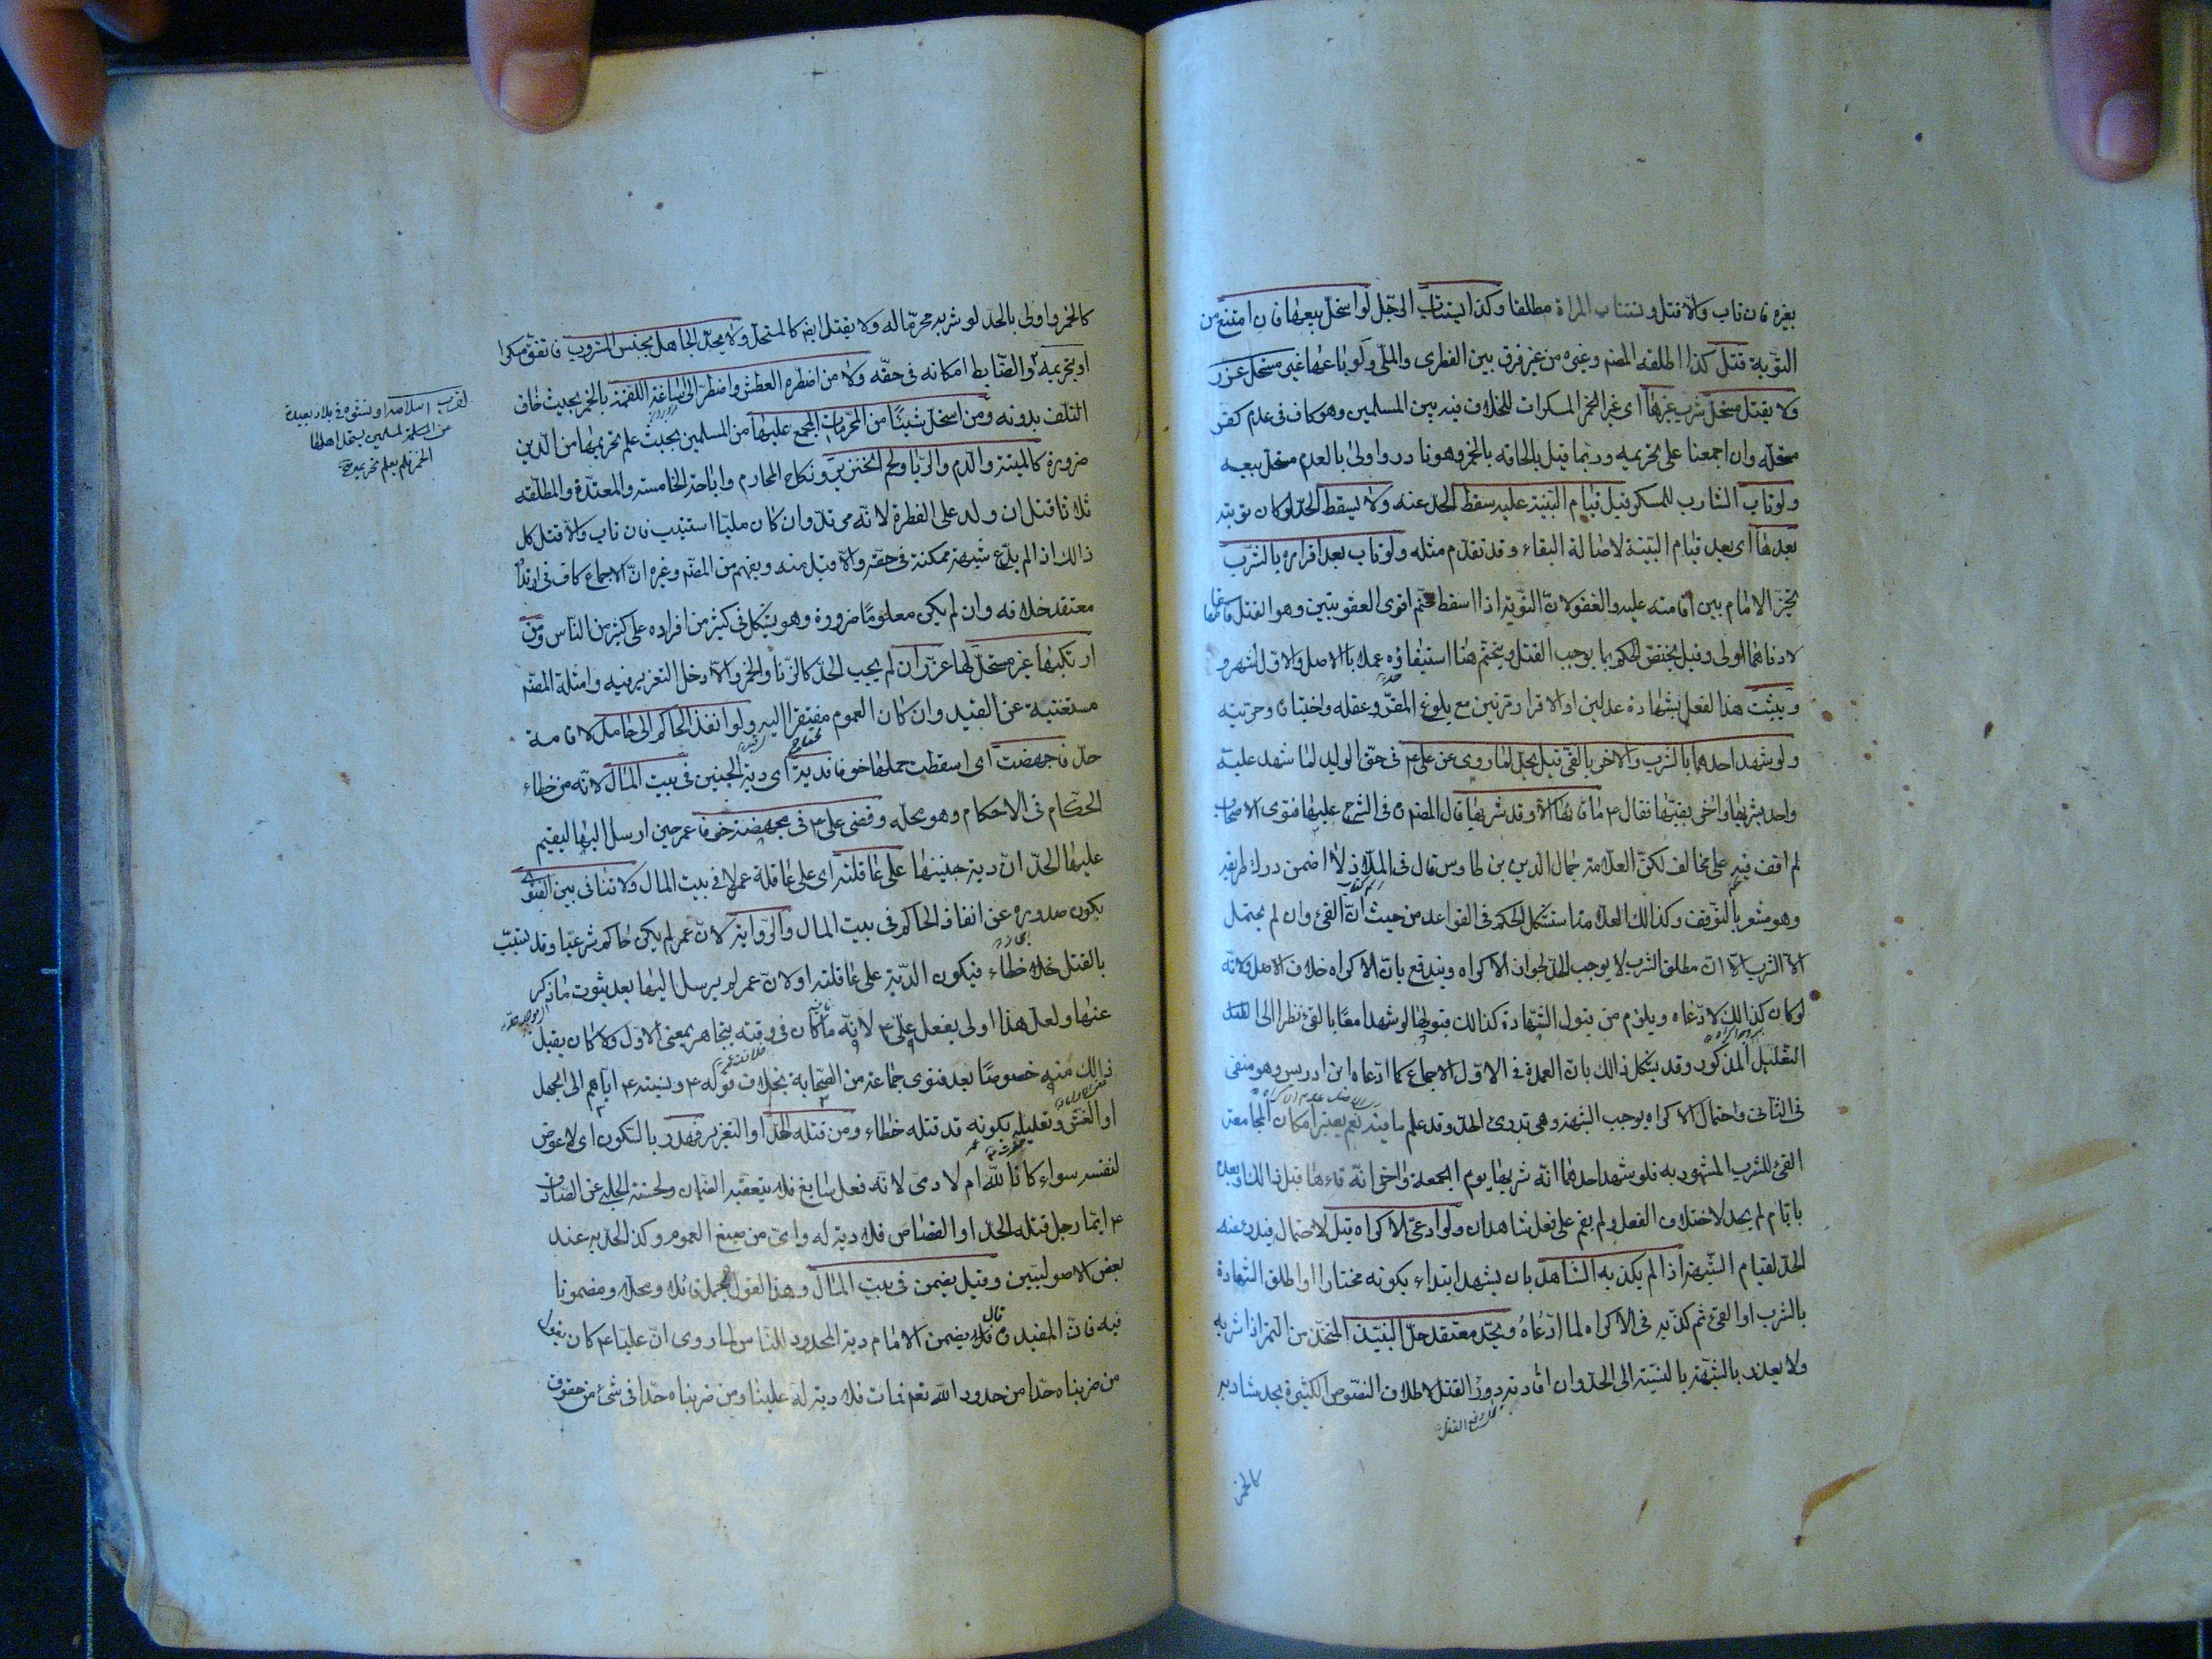 بغيره فان تاب والا قتل وتستتاب المراة مطلقا وكذا يستتاب الرجل لو استحل بيعها فان امتنع من
التوبة قتل كذا اطلقه المصنف وغيره من غير فرق بين الفطرى والملى ولو باعها غير مستحل عزر
ولا يقتل مستحل شرب غيرها اى غير الخمر المسكرات للخلاف فيه بين المسلمين وهو كاف فى عدم كفر
مستحله وان اجمعنا على تحريمه وربما قيل بالحاقه بالخمر وهو نادر واولى بالعدم مستحل بيعه
ولو تاب الشارب للمسكر قبل قيام البينة عليه سقط الحد عنه ولا يسقط الحد لو كان توبته
بعدها اى بعد قيام البينة لاصالة البقاء وقد تقدم مثله ولو تاب بعد اقراره بالشرب
تخير الامام بين اقامته عليه والعفو لان التوبة اذا اسقط تحتم اقوى العقوبتين وهو القتل فاسقاطها
لادناهما اولى وقيل يختص الحكم بما يوجب القتل ويتحتم هنا استيفاؤه عملا بالاصل والاول اشهر و
ويثبت هذا الفعل بشهادة عدلين او الاقرار مرتين مع بلوغ المقر وعقله واختياره وحريته
ولو شهد احدهما بالشرب والاخر بالقئ قيل يحد لما روى عن على ع فى حق الوليد لما شهد عليه
واحد بشربها واخر بقيئها فقال ع ما قاءها الا وقد شربها قال المصنف فى الشرح عليها فتوى الاصحاب
لم اقف فيه على مخالف لكن العلامة جمال الدين بن طاوس قال فى الملاذ لا اضمن درك طريقه
وهو مشعر بالتوقف وكذلك العلامة استشكل الحكم فى القواعد من حيث ان القئ وان لم يحتمل
الا الشرب الا ان مطلق الشرب لا يوجب الحد لجواز الاكراه ويندفع بان الاكراه خلاف الاصل ولانه
لو كان كذلك لادعاه ويلزم من قبول الشهادة كذلك قبولها لو شهدا معا بالقئ نظرا الى
التعليل المذكور وقد يشكل ذالك بان العمدة فى الاول الاجماع كما ادعاه ابن ادريس وهو منفى
فى الثانى واحتمال الاكراه يوجب الشبهة وهى تدرئ الحد وقد علم ما فيه نعم يعتبر امكان مجامعة
القئ للشرب المشهود به فلو شهد احدهما انه شربها يوم الجمعة واخر انه قاءها قبل ذالك او بعده
بايام لم يحد لاختلاف الفعل ولم يقم على فعل شاهدان ولو ادعى الاكراه قبل لاحتمال فيدرء عنه
الحد لقيام الشبهة اذا لم يكذبه الشاهد بان يشهد ابتداء بكونه مختارا او اطلق الشهادة
بالشرب او القئ ثم كذبه فى الاكراه لما ادعاه ويحد معتقد حل النبيذ المتخذ من التمر اذا شربه
ولا يعذر بالشبهة بالنسبة الى الحد وان افادته درء القتل لاطلاق النصوص الكثيرة بحد شاربه
كالخمر
كالخمر واولى بالحد لو شربه محرما له ولا يقتل ايضا كالمستحل ولا يحد الجاهل بجنس المشروب فاتفق مسكرا
او بتحريمه والضابط امكانه فى حقه ولا من اضطره العطش واضطر الى اساغة اللقمة بالخمر بحيث خاف
التلف بدونه ومن استحل شيئا من المحرمات المجمع عليها من المسلمين بحيث علم تحريمها من الدين
ضرورة كالميتة والدم والربا ولحم الخنزير ونكاح المحارم واباحة الخامسة والمعتدة والمطلقة
ثلاثا قتل ان ولد على الفطرة لانه مرتد وان كان مليا استتيب فان تاب والا قتل كل
ذالك اذا لم يدع شبهة ممكنة فى حقه والا قبل منه ويفهم من المصنف وغيره ان الاجماع كاف فى ارتداد
معتقد خلافه وان لم يكن معلوما ضرورة وهو يشكل فى كثير من افراده على كثير من الناس ومن
ارتكبها غير مستحل لها عزر ان لم يجب الحد كالزنا والخمر والا دخل التعزير فيه وامثلة المصنف
مستغنية عن القيد وان كان العموم مفتقرا اليه ولو انفذ الحاكم الى حامل لاقامة
حد فاجهضت اى اسقطت حملها خوفا فدية اى دية الجنين فى بيت المال لانه من خطاء
الحكام فى الاحكام وهو محله وقضى على ع فى مجهضة خوفا عمر حين ارسل اليها ليقيم
عليها الحد ان دية جنينها على عاقلته اى على عاقلة عمر لا فى بيت المال ولا تنافى بين الفتوى
بكون صدوره عن انفاذ الحاكم فى بيت المال والرواية لان عمر لم يكن حاكم شرعيا وقد تسبب
بالقتل خطاء فيكون الدية على عاقلته او لان عمر لم يرسل اليها بعد ثبوت ما ذكر
عنها ولعل هذا اولى بفعل على ع لانه ما كان فى وقته يتجاهر بمعنى الاول ولا كان يقبل
ذالك منه خصوصا بعد فتوى جماعة من الصحابة بخلاف قوله ع ونسبته ع اياهم الى الجهل
او الغش وتعليله بكونه قد قتله خطاء ومن قتله الحد او التعزير فهدر بالسكون اى لا عوض
لنفسه سواء كانا لله ام لادمى لانه فعل سايغ فلا يتعقبه الضمان ولحسنة الحلبى عن الصادق
ع ايما رجل قتله الحد او القصاص فلا دية له واى من صيغ العموم وكذا الحد به عند
بعض الاصوليين وقيل يضمن فى بيت المال وهذا القول مجمل قائلا ومحلا ومضمونا
فيه فان المفيد قال يضمن الامام دية المحدود للناس لما روى ان عليا ع كان يقول
من ضربناه حدا من حدود الله نعم فمات فلا دية له علينا ومن ضربناه حدا فى شئ من حقوق
لقرب اسلامه او نشوه فى بلاد بعيدة
عن المسلمين يستحل اهلها
الخمر فلم يعلم تحريمه